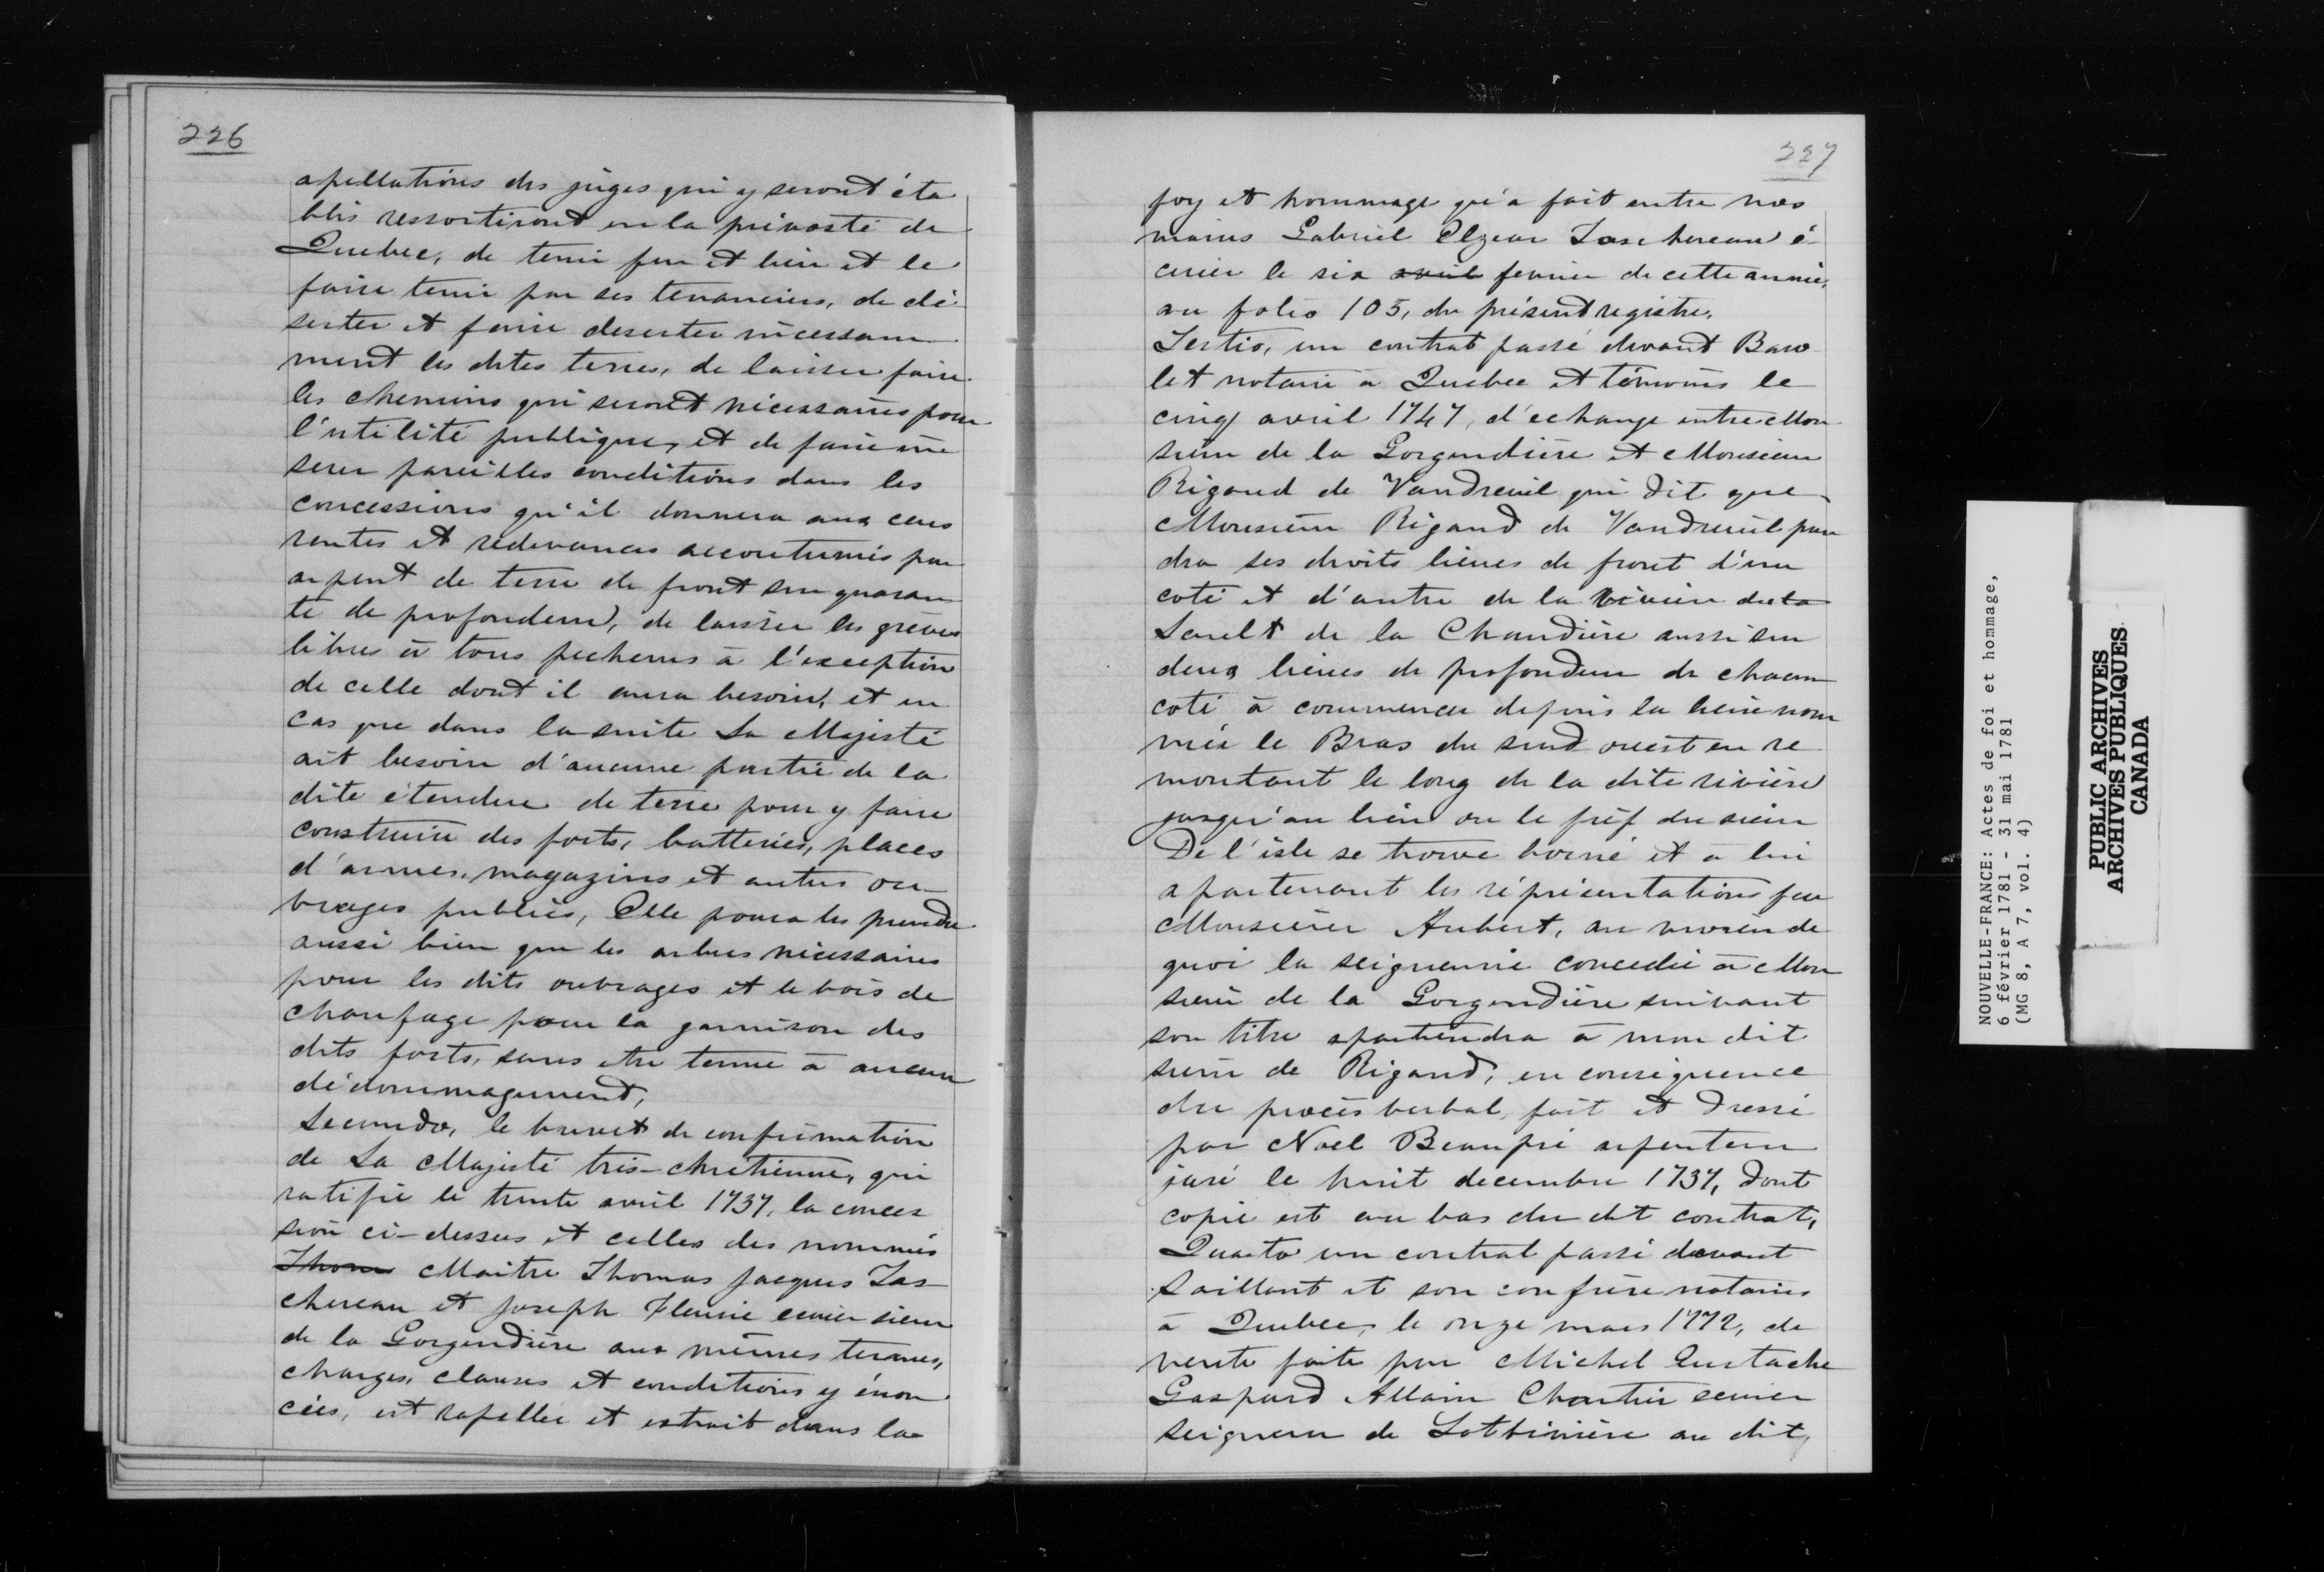 226
apellations des juges qui y seront éta
blis ressortiront en la prévosté de
Quebec, de tenir feu et lieu et le
faire tenir par ses tenanciers, de dé
serter et faire deserter incessam
ment les dites terres, de laisser faire
les chemins qui seront nécessaires pour
l'utilité publique, et de faire in
serer pareilles conditions dans les
concessions qu'il donnera aux cens
rentes et redevances accoutumés par
arpent de terre de front sur quaran
te de profondeur, de laisser les grèves
libres à tous pecheurs à l'exception
de celle dont il aura besoin, et en
cas que dans la suite Sa Majesté
ait besoin d'aucune partie de la
dite étendue de terre pour y faire
construire des forts, batteries, places
d'armes, magazins et autres ou
vrages publics, Elle poura les prendre
aussi bien que les arbres nécessaires
pour les dits ouvrages et le bois de
chaufage pour la garnison des
dits forts, sans etre tenue à aucun
dédommagement,
Secundo, le brevet de confirmation
de Sa Majesté très-chretienne, qui
ratifie le trente avril 1737, la conces
sion ci-dessus et celles des nommés
Thom Maitre Thomas Jacques Tas
chereau et Joseph Fleurie ecuier sieur
de la Gorgendière aux mêmes termes,
charges, clauses et conditions y énon
cées, est rapellée et extrait dans la
227
foy et hommage qu'a fait entre nos
mains Gabriel Elzear Taschereau é
cuier le six avril fevrier de cette année,
au folio 105, du présent registre,
Tertio, un contrat passé devant Baro
let notaire à Quebec et témoins le
cinq avril 1747, d'echange entre Mon
sieur de la Gorgendière et Monsieur
Rigaud de Vaudreuil qui dit que
Monsieur Rigaud de Vaudreuil pren
dra ses droits lieues de front d'un
coté et d'autre de la rivière du ta
Sault de la Chaudière aussi sur
deux lieues de profondeur de chacun
coté à commencer depuis la lieue nom
mée le Bras du sud ouest en re
montant le long de la dite rivière
jusqu'au lieu ou le fief du sieur
De l'isle se trouve borné et à lui
apartenant les réprésentations feu
Monsieur Aubert, au moien de
quoi la seigneurie concedée à Mon
sieur de la Gorgendière suivant
son titre apartiendra à mon dit
sieur de Rigaud, en conséquence
du procès verbal, fait et dressé
par Noel Beaupré arpenteur
juré le huit decembre 1737, dont
copie est au bas du dit contrat,
Quarto un contrat passé devant
Saillant et son confrère notaires
à Quebec, le onze mars 1772, de
vente faite par Michel Eustache
Gaspard Allain Chartier ecuier
seigneur de Lotbinière au dit
NOUVELLE-FRANCE: Actes de foi et hommage,
6 février 1781 - 31 mai 1781
(MG 8, A 7, vol. 4)
PUBLIC ARCHIVES
ARCHIVES PUBLIQUES
CANADA